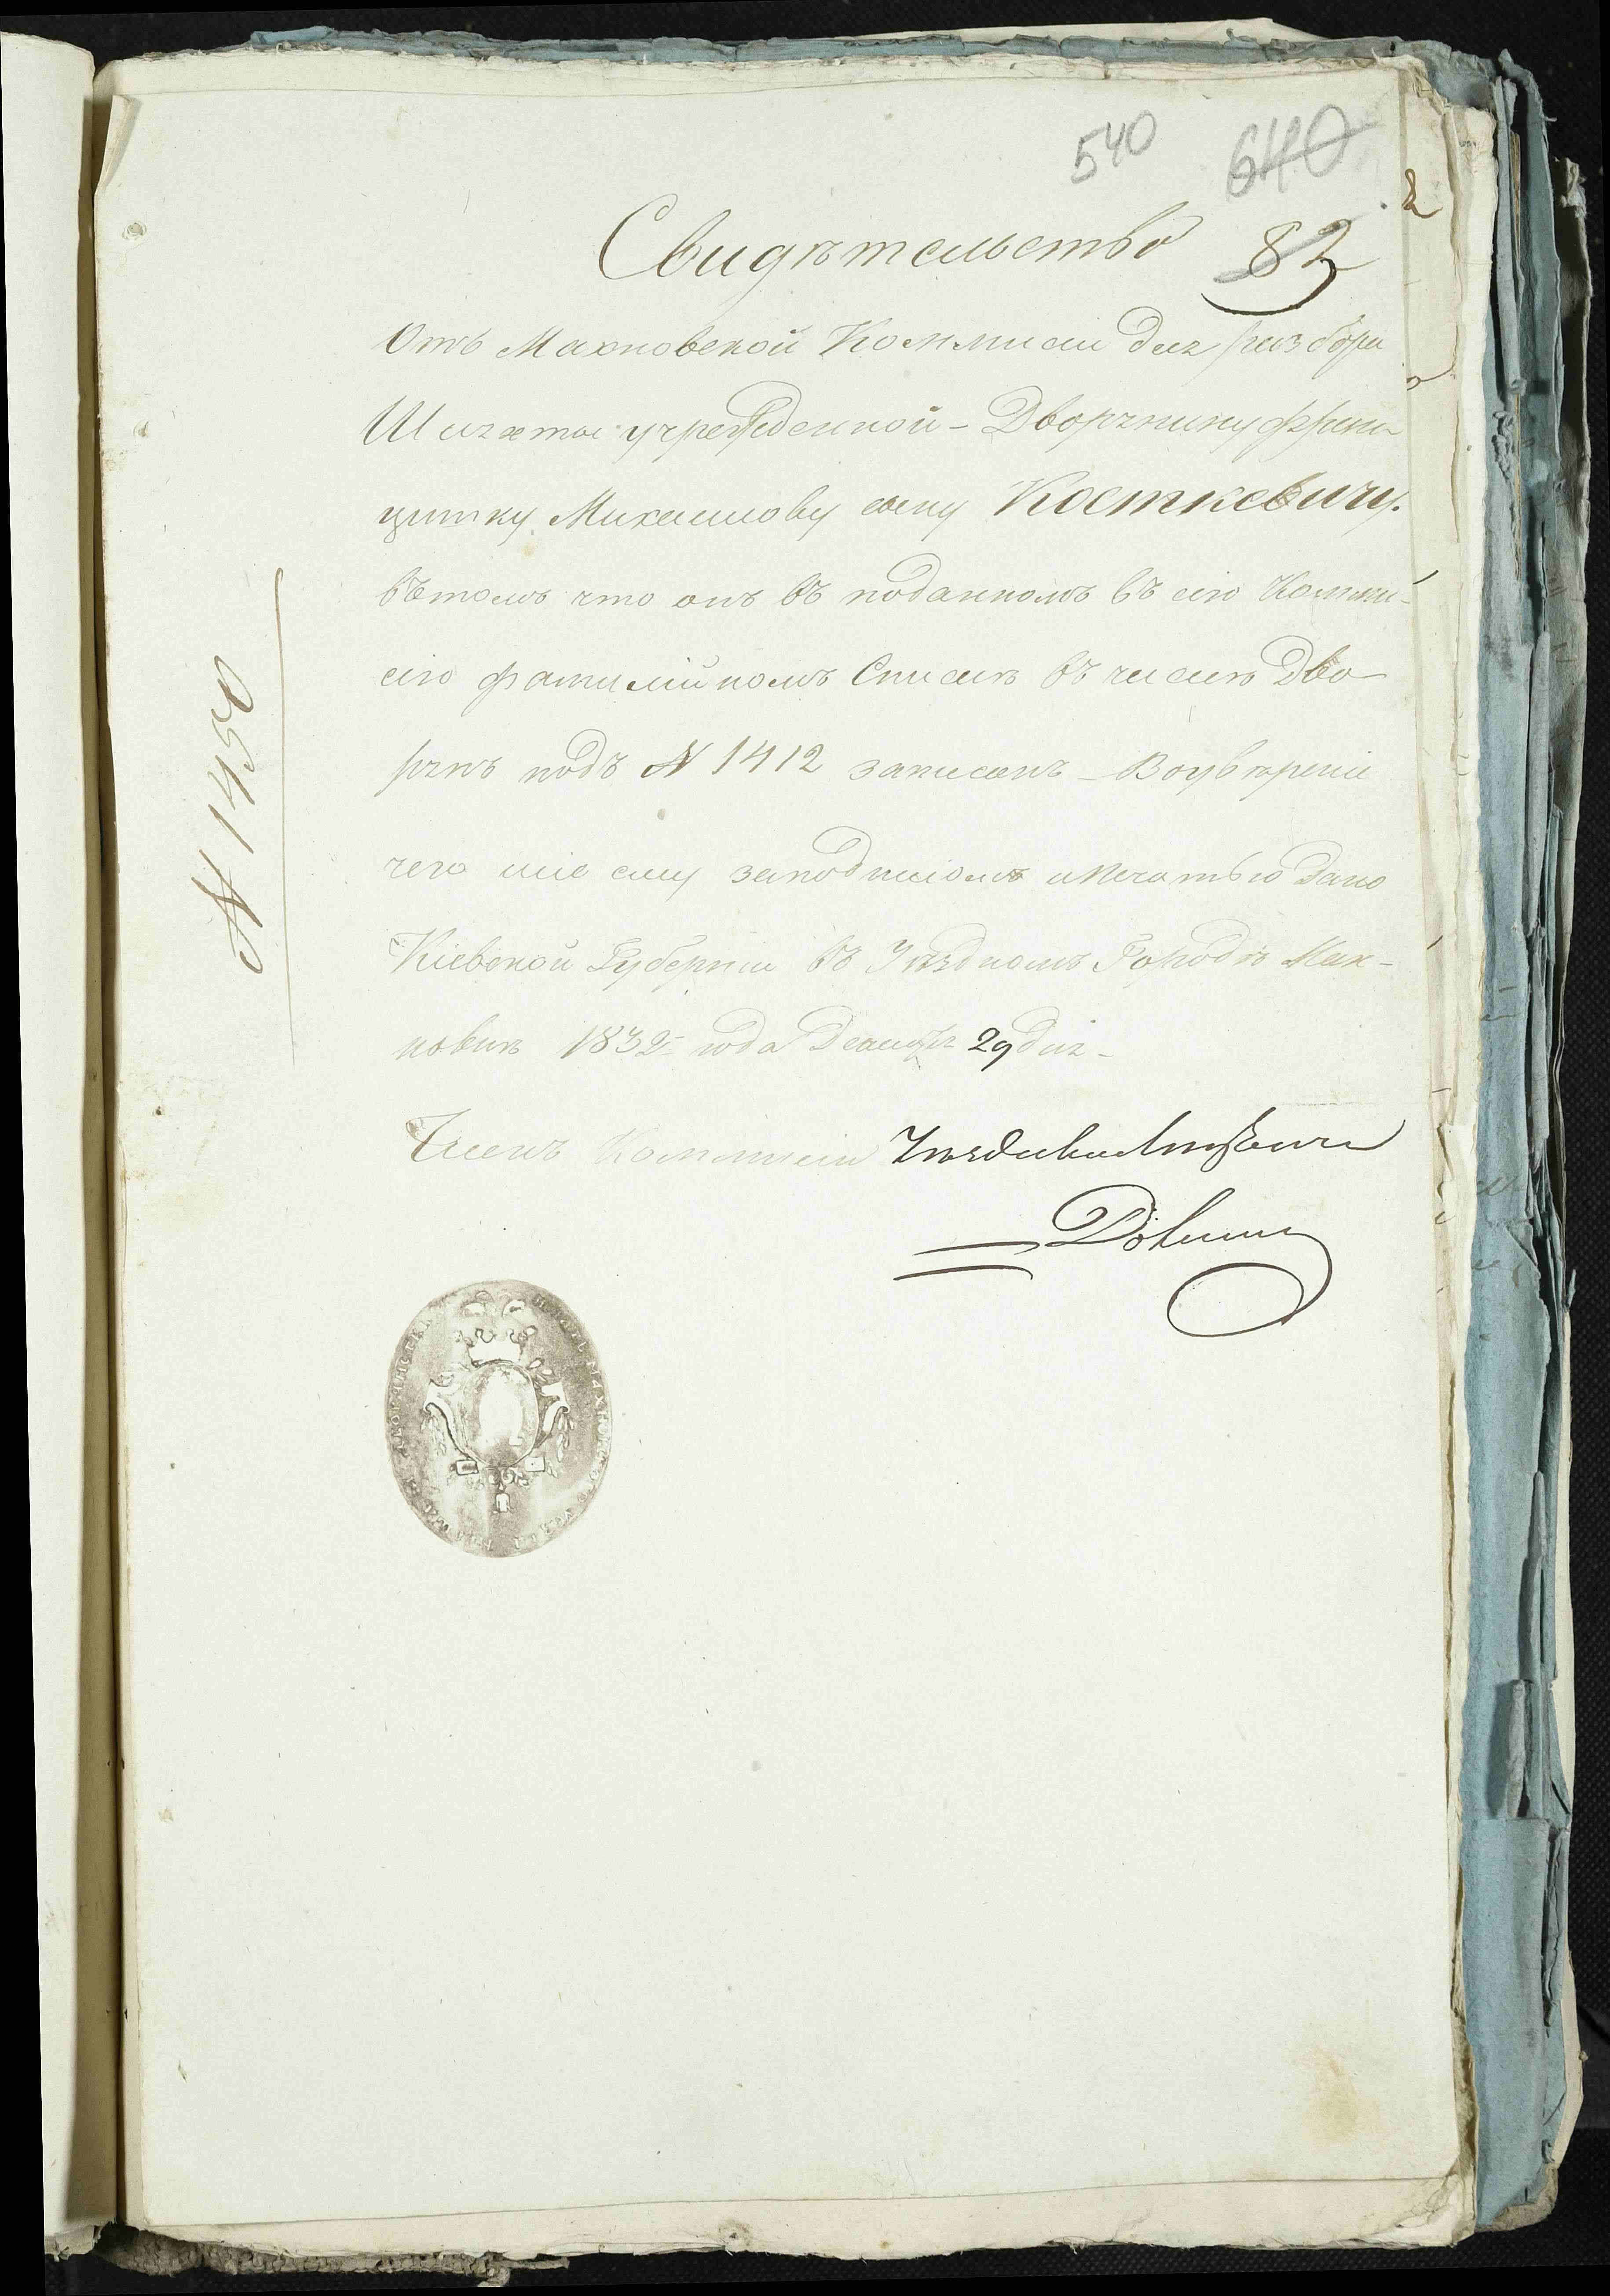 540 640
Свидѣтельство 82
Отъ Махновской Коммисіи для разбора
Шляхты учрежденной - Дворянину Фран-
цишку Михаилову сыну Косткевичу.
въ томъ что онъ въ поданномъ въ сію Комми-
сію фамилійномъ Списке въ числѣ Дво-
рянъ подъ N 1412 записанъ - Воувѣреніе
чего сіе ему заподписомъ ипечатью Дано
Кіевской Губерніи въ Уѣздномъ Городѣ Мах-
новкѣ 1832 года Декабря 29 дня -
Членъ Коммисіи
N 1450